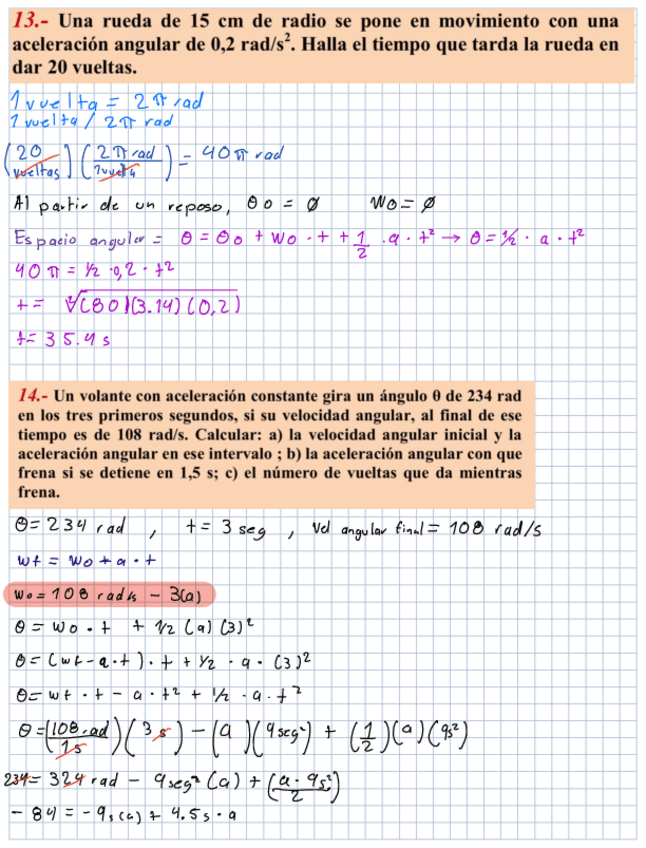 13.- Una rueda de 15 cm de radio se pone en movimiento con una
aceleración angular de 0,2 rad/s². Halla el tiempo que tarda la rueda en
dar 20 vueltas.
1 vuelta = 2π rad
1 vuelta / 2π rad
(20 vueltas) (2π rad / 1 vuelta) = 40π rad
Al partir de un reposo, θo = ∅ Wo = ∅
Espacio angular = θ = θo + Wo · t + 1/2 · a · t² → θ = 1/2 · a · t²
40π = 1/2 · 0,2 · t²
t = ²√(80)(3.14)(0,2)
t = 35.4 s
14.- Un volante con aceleración constante gira un ángulo θ de 234 rad
en los tres primeros segundos, si su velocidad angular, al final de ese
tiempo es de 108 rad/s. Calcular: a) la velocidad angular inicial y la
aceleración angular en ese intervalo ; b) la aceleración angular con que
frena si se detiene en 1,5 s; c) el número de vueltas que da mientras
frena.
θ = 234 rad , t = 3 seg , Vel angular final = 108 rad/s
wf = wo + a · t
wo = 108 rad/s - 3(a)
θ = wo · t + 1/2 (a) (3)²
θ = (wf - a · t) · t + 1/2 · a · (3)²
θ = wf · t - a · t² + 1/2 · a · t²
θ = (108 rad / 1s) (3 s) - (a) (9 seg²) + (1/2) (a) (9s²)
234 = 324 rad - 9 seg² (a) + (a · 9s² / 2)
- 84 = - 9s (a) + 4.5 s · a